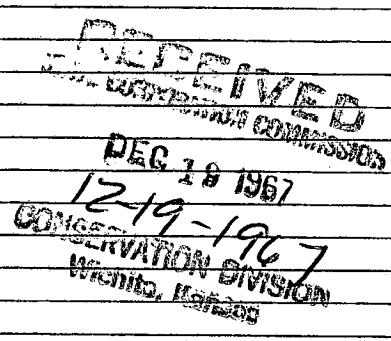 RECEIVED
STATE CORPORATION COMMISSION
DEC 19 1967
12-19-1967
CONSERVATION DIVISION
Wichita, Kansas